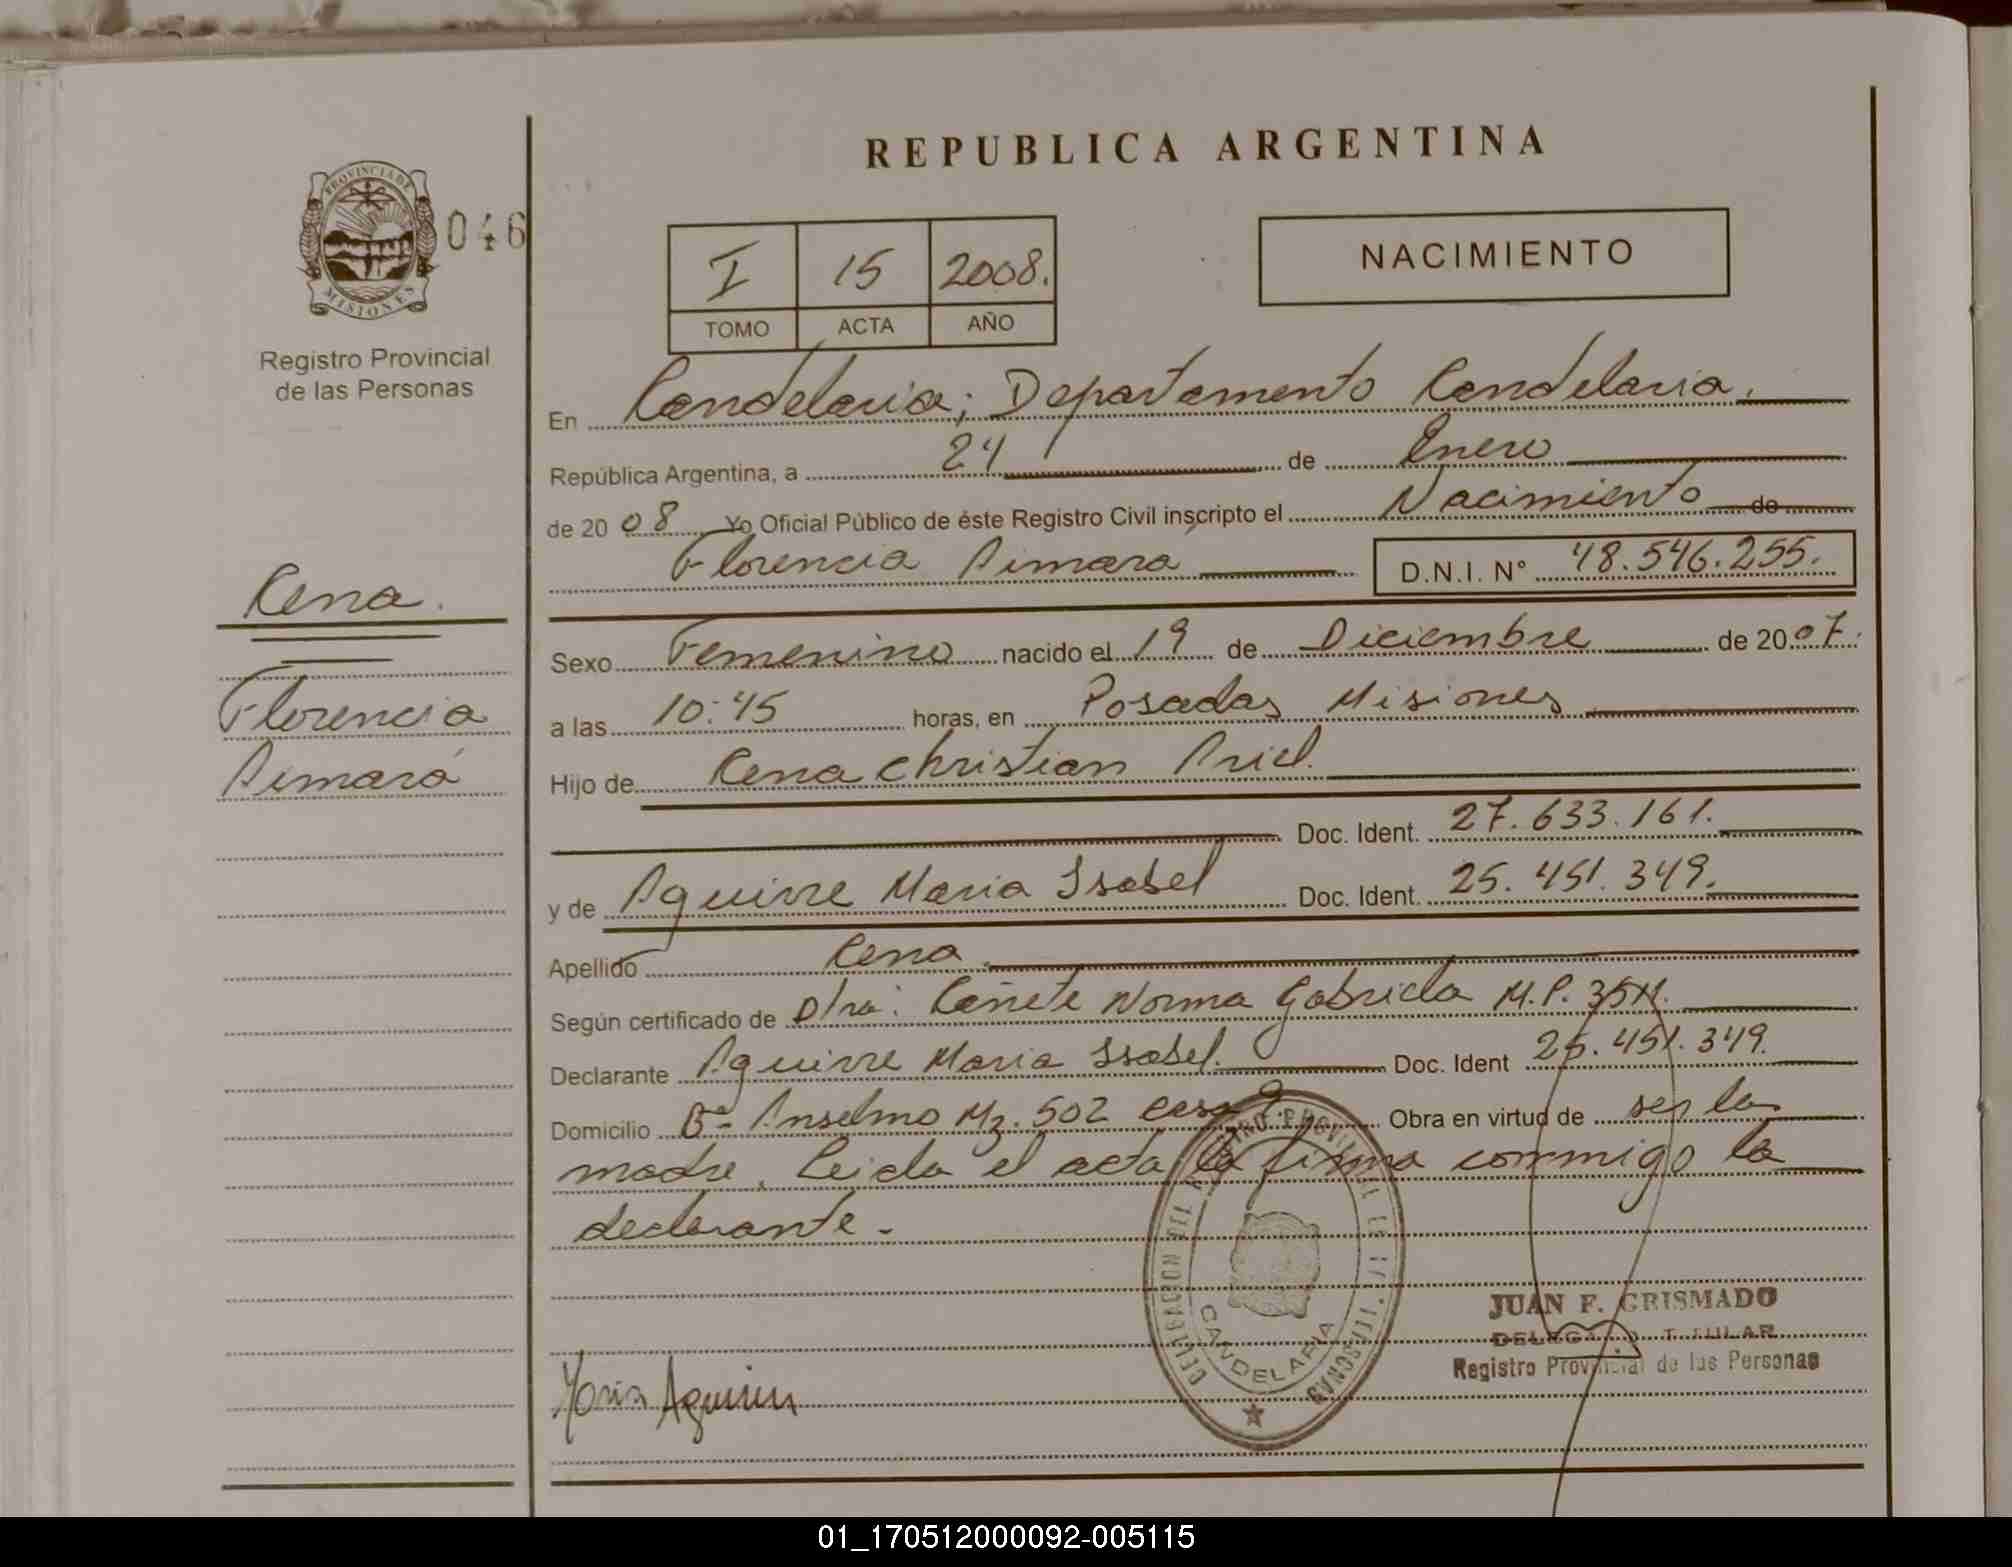 REPUBLICA ARGENTINA
PROVINCIA DE
MISIONES
046
Registro Provincial
de las Personas
I 15 2008.
TOMO ACTA AÑO
NACIMIENTO
En Candelaria; Departamento Candelaria.
República Argentina, a 24 de Enero
de 2008 Yo Oficial Público de éste Registro Civil inscripto el Nacimiento de
Florencia Aimara D.N.I. N° 48.546.255.
Cena.
Florencia
Aimará
Sexo Femenino nacido el 19 de Diciembre de 2007.
a las 10:45 horas, en Posadas Misiones
Hijo de Cena Christian Ariel.
Doc. Ident. 27.633.161.
y de Aguirre Maria Isabel Doc. Ident. 25.451.349.
Apellido Cena
Según certificado de Dra. Cañete Norma Gabriela M.P.
Declarante Aguirre Maria Isabel. Doc. Ident 25.451.349.
Domicilio Bº Anselmo Mz. 502 casa 9 Obra en virtud de ser la
madre. Leida el acta la firma conmigo la
declarante.
DELEGACION DEL REGISTRO PROVINCIAL DE LAS PERSONAS
CANDELARIA
JUAN F. GRISMADO
DELEGADO TITULAR
Registro Provincial de las Personas
Maria Aguirre
01_170512000092-005115